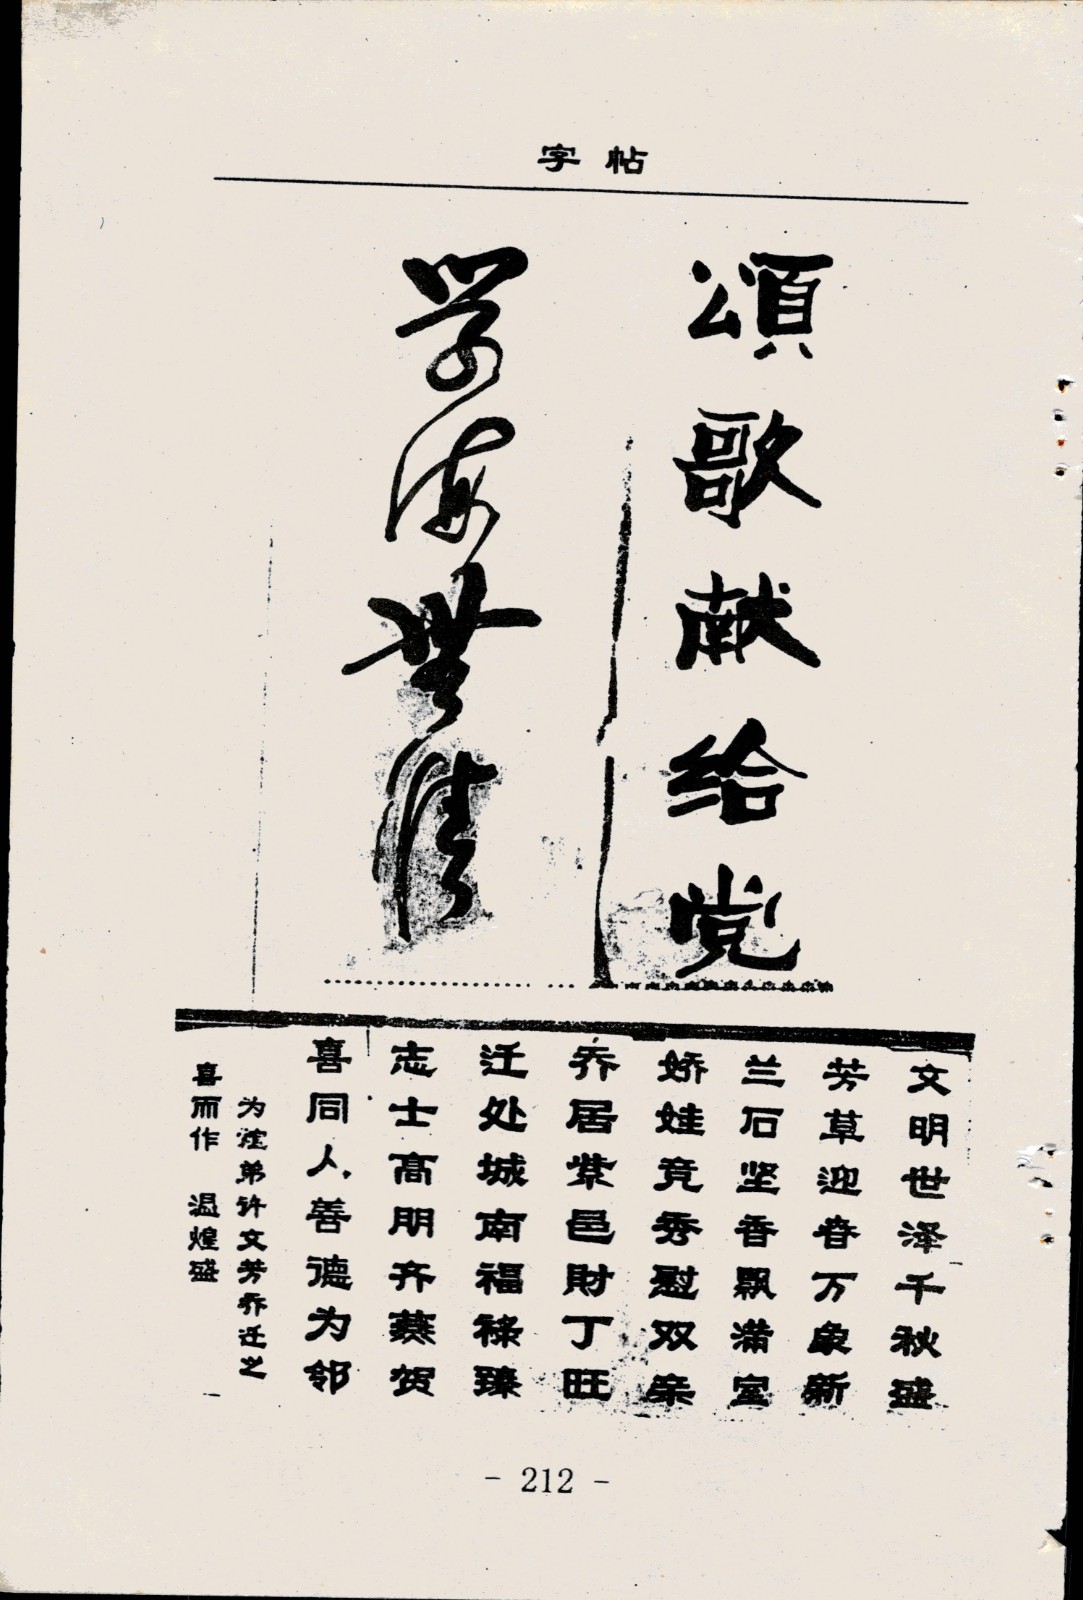 字帖
頌歌献给党
学海無涯
文明世泽千秋盛
芳草迎春万象新
兰石坚香飘满室
娇娃竞秀慰双亲
乔居紫邑財丁旺
迁处城南福禄臻
志士高朋齐燕贺
喜同人善德为邻
为 弟许文芳乔迁之
喜而作 温煌盛
- 212 -